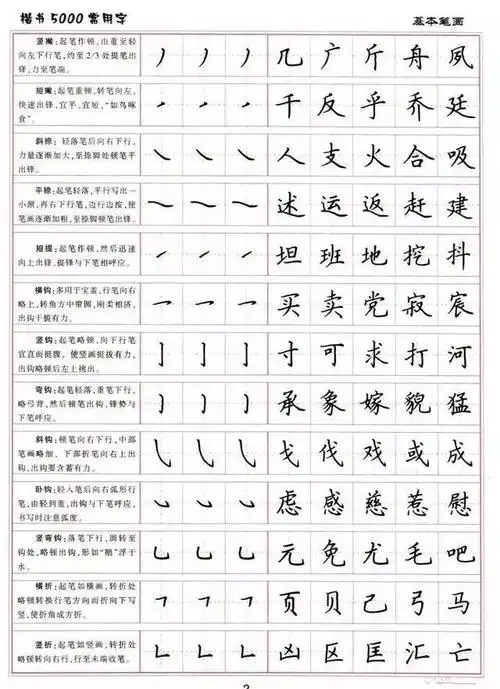 楷书5000常用字
基本笔画
竖撇:起笔作顿,由重至轻
向左下行笔,约至2/3处提笔出
锋,力至笔端。
几 广 斤 舟 夙
短撇:起笔重顿,转笔向左,
快速出锋,宜平、宜短,“如鸟啄
食”。
千 反 乎 乔 廷
斜捺:轻落笔后向右下行,
力量逐渐加大,至捺脚处顿笔平
出锋。
人 支 火 合 吸
平捺:起笔轻落,平行写出一
小颈,再右下行笔,边行边按,使
笔画逐渐加粗,至捺脚顿笔出锋。
述 运 返 赶 建
短提:起笔作顿,然后迅速
向上出锋,提锋与下笔相呼应。
坦 班 地 挖 抖
横钩:多用于宝盖,行笔向右
略上,转角方中带圆,刚柔相济,
出钩干脆有力。
买 卖 党 寂 宸
竖钩:起笔略顿,向下行笔
宜直而挺腹,使竖画挺拔有力,
出钩略顿后左上挑出。
寸 可 求 打 河
弯钩:起笔轻落,重笔下行,
略弓背,然后顿笔出钩,锋势与
下笔呼应。
承 象 嫁 貌 猛
斜钩:顿笔向右下行,中部
笔画略细、下部折笔向右上出
钩,出钩要含蓄有力。
戈 伐 戏 或 成
卧钩:轻入笔后向右弧形行
笔,由轻到重,出钩与下笔呼应,
书写时注意弧度。
虑 感 慈 惹 慰
竖弯钩:落笔下行,圆转至
钩处,略顿出钩,形如“鹅”浮于
水。
元 免 尤 毛 吧
横折:起笔如横画,转折处
略顿转换行笔方向而折向下写
竖,使折角成方折。
页 贝 己 弓 马
竖折:起笔如竖画,转折处
略顿转向右行,行至末端收笔。
凶 区 匡 汇 亡